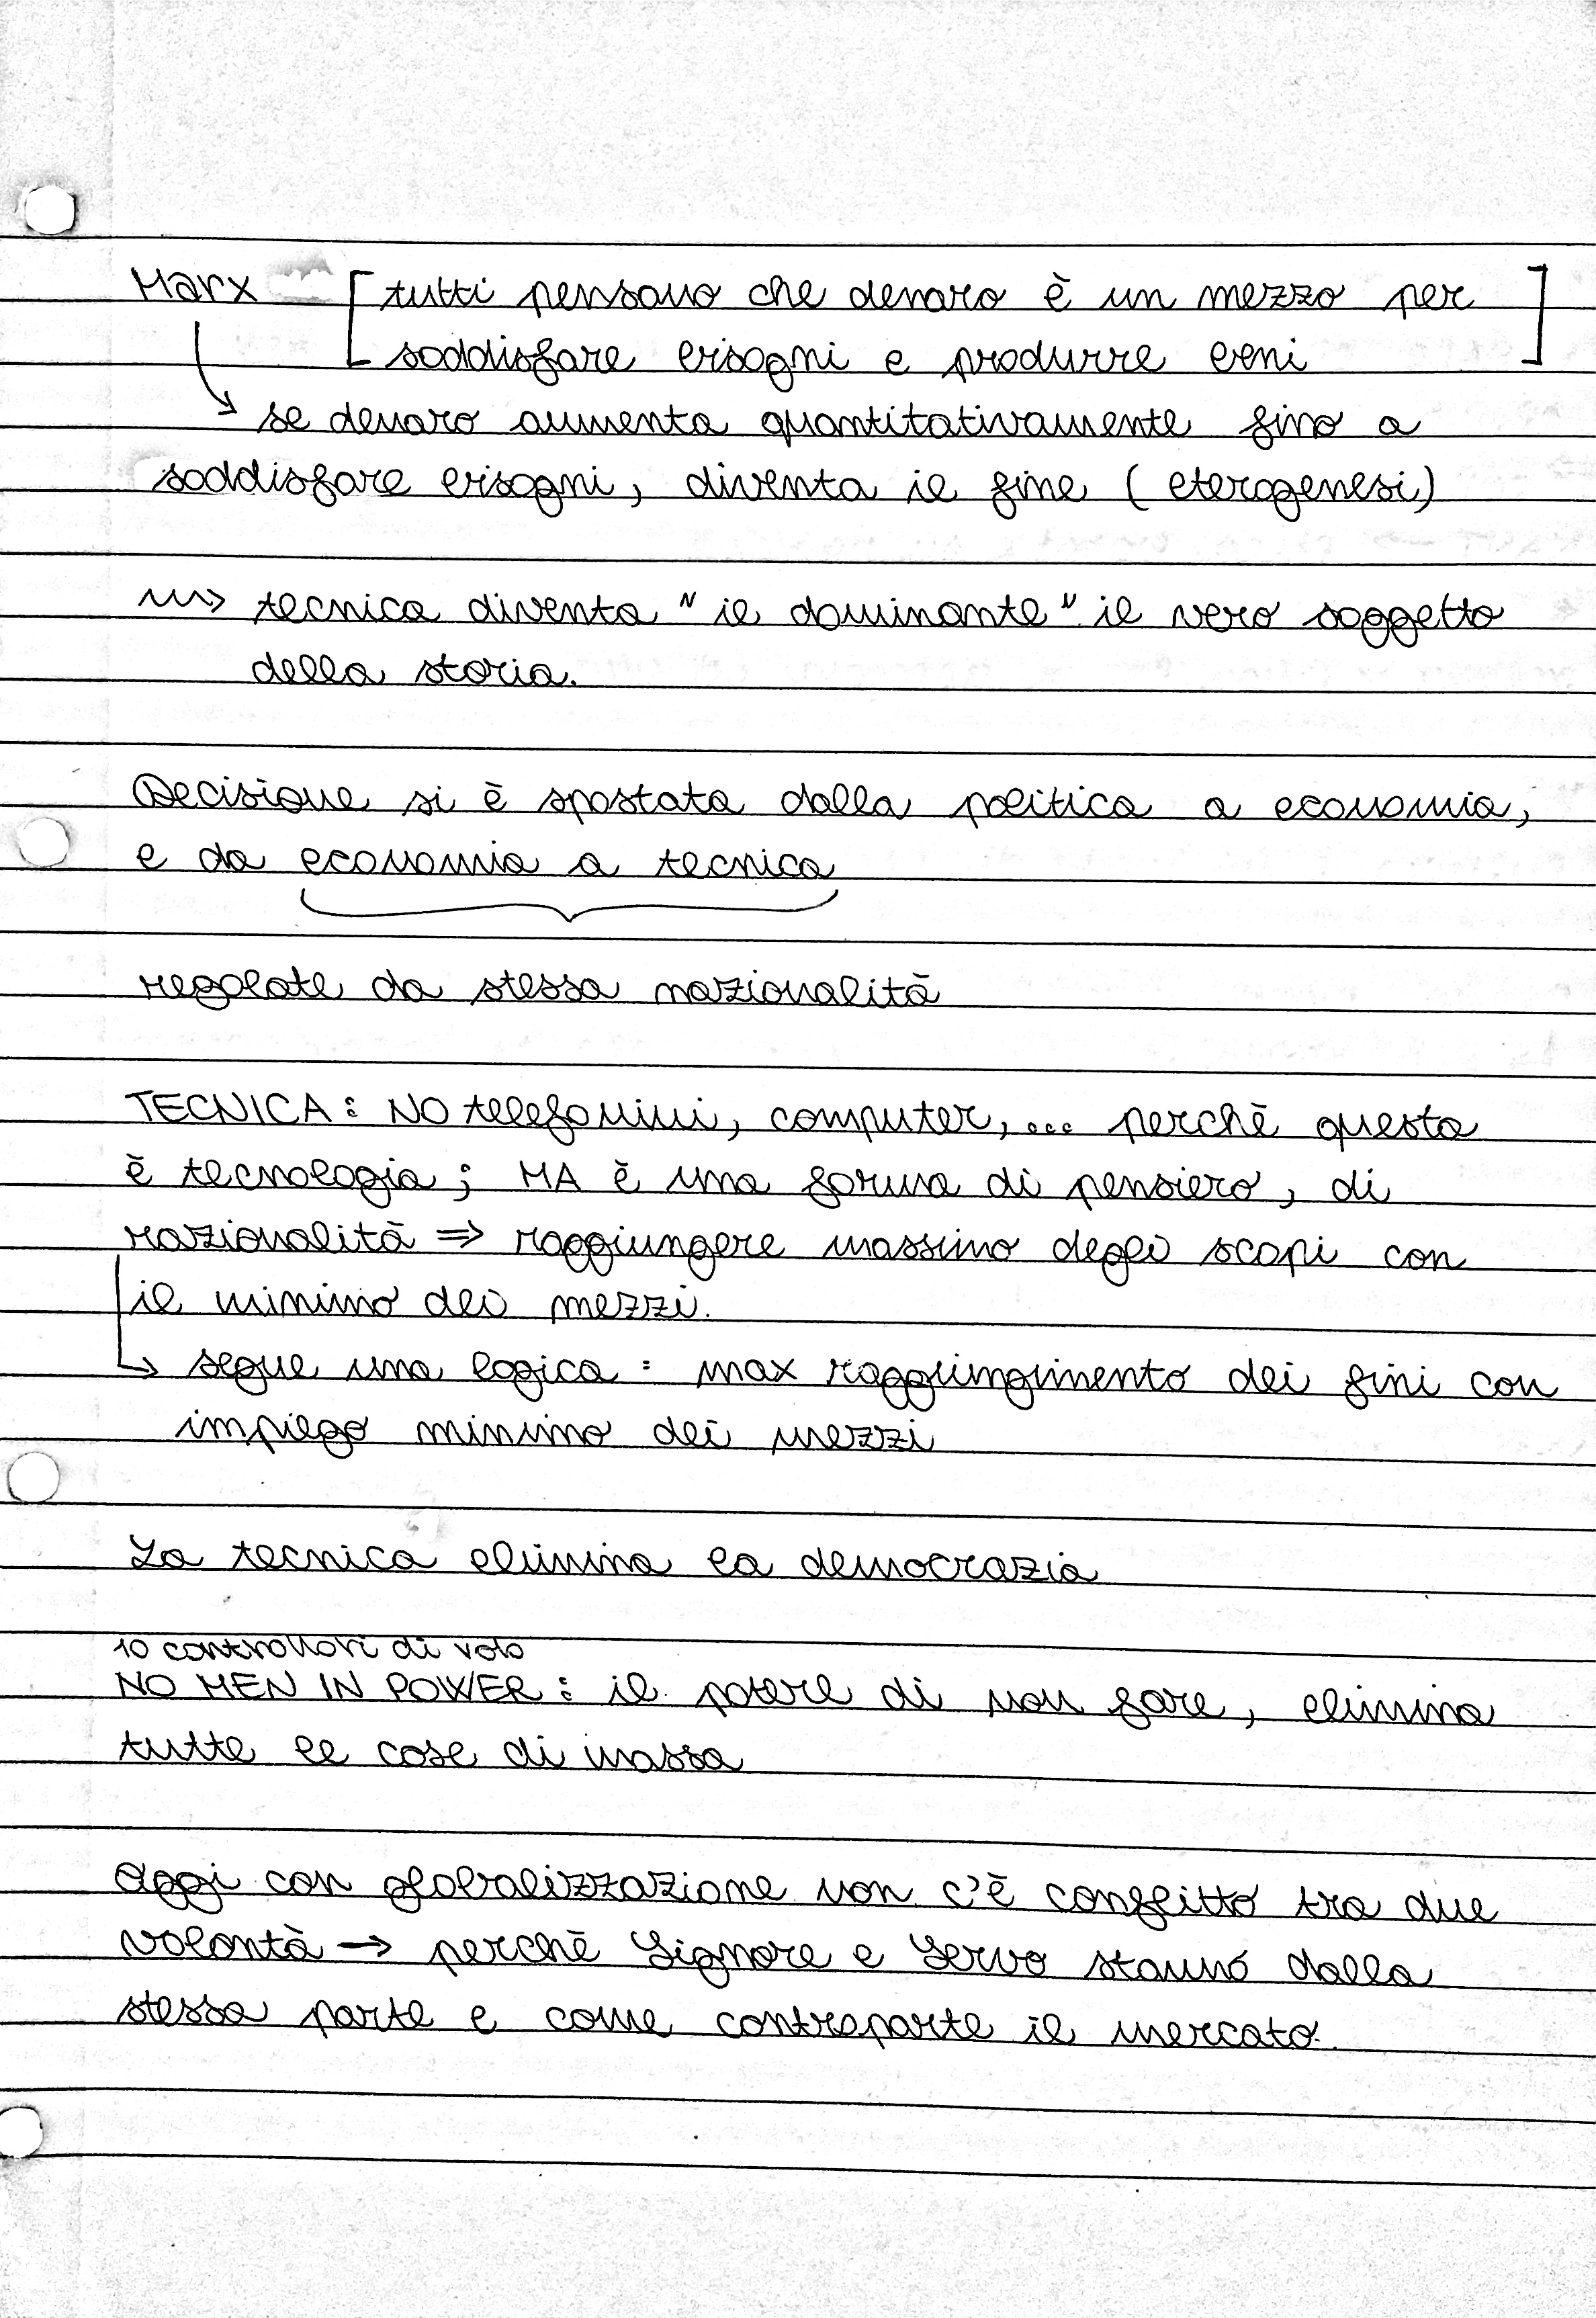 Marx [ tutti pensano che denaro è un mezzo per ]
soddisfare bisogni e produrre beni
↳ se denaro aumenta quantitativamente fino a
soddisfare bisogni, diventa il fine (eterogenesi)
~> tecnica diventa "il dominante" il vero soggetto
della storia.
Decisione si è spostata dalla politica a economia,
e da economia a tecnica
regolate da stessa razionalità
TECNICA: NO telefonini, computer,... perchè questa
è tecnologia; MA è una forma di pensiero, di
razionalità => raggiungere massimo degli scopi con
il minimo dei mezzi.
↳ segue una logica: max raggiungimento dei fini con
impiego minimo dei mezzi
La tecnica elimina la democrazia
10 controllori di volo
NO MEN IN POWER: il potere di non fare, elimina
tutte le cose di massa
Oggi con globalizzazione non c'è conflitto tra due
volontà → perchè Signore e Servo stanno dalla
stessa parte e come controparte il mercato.